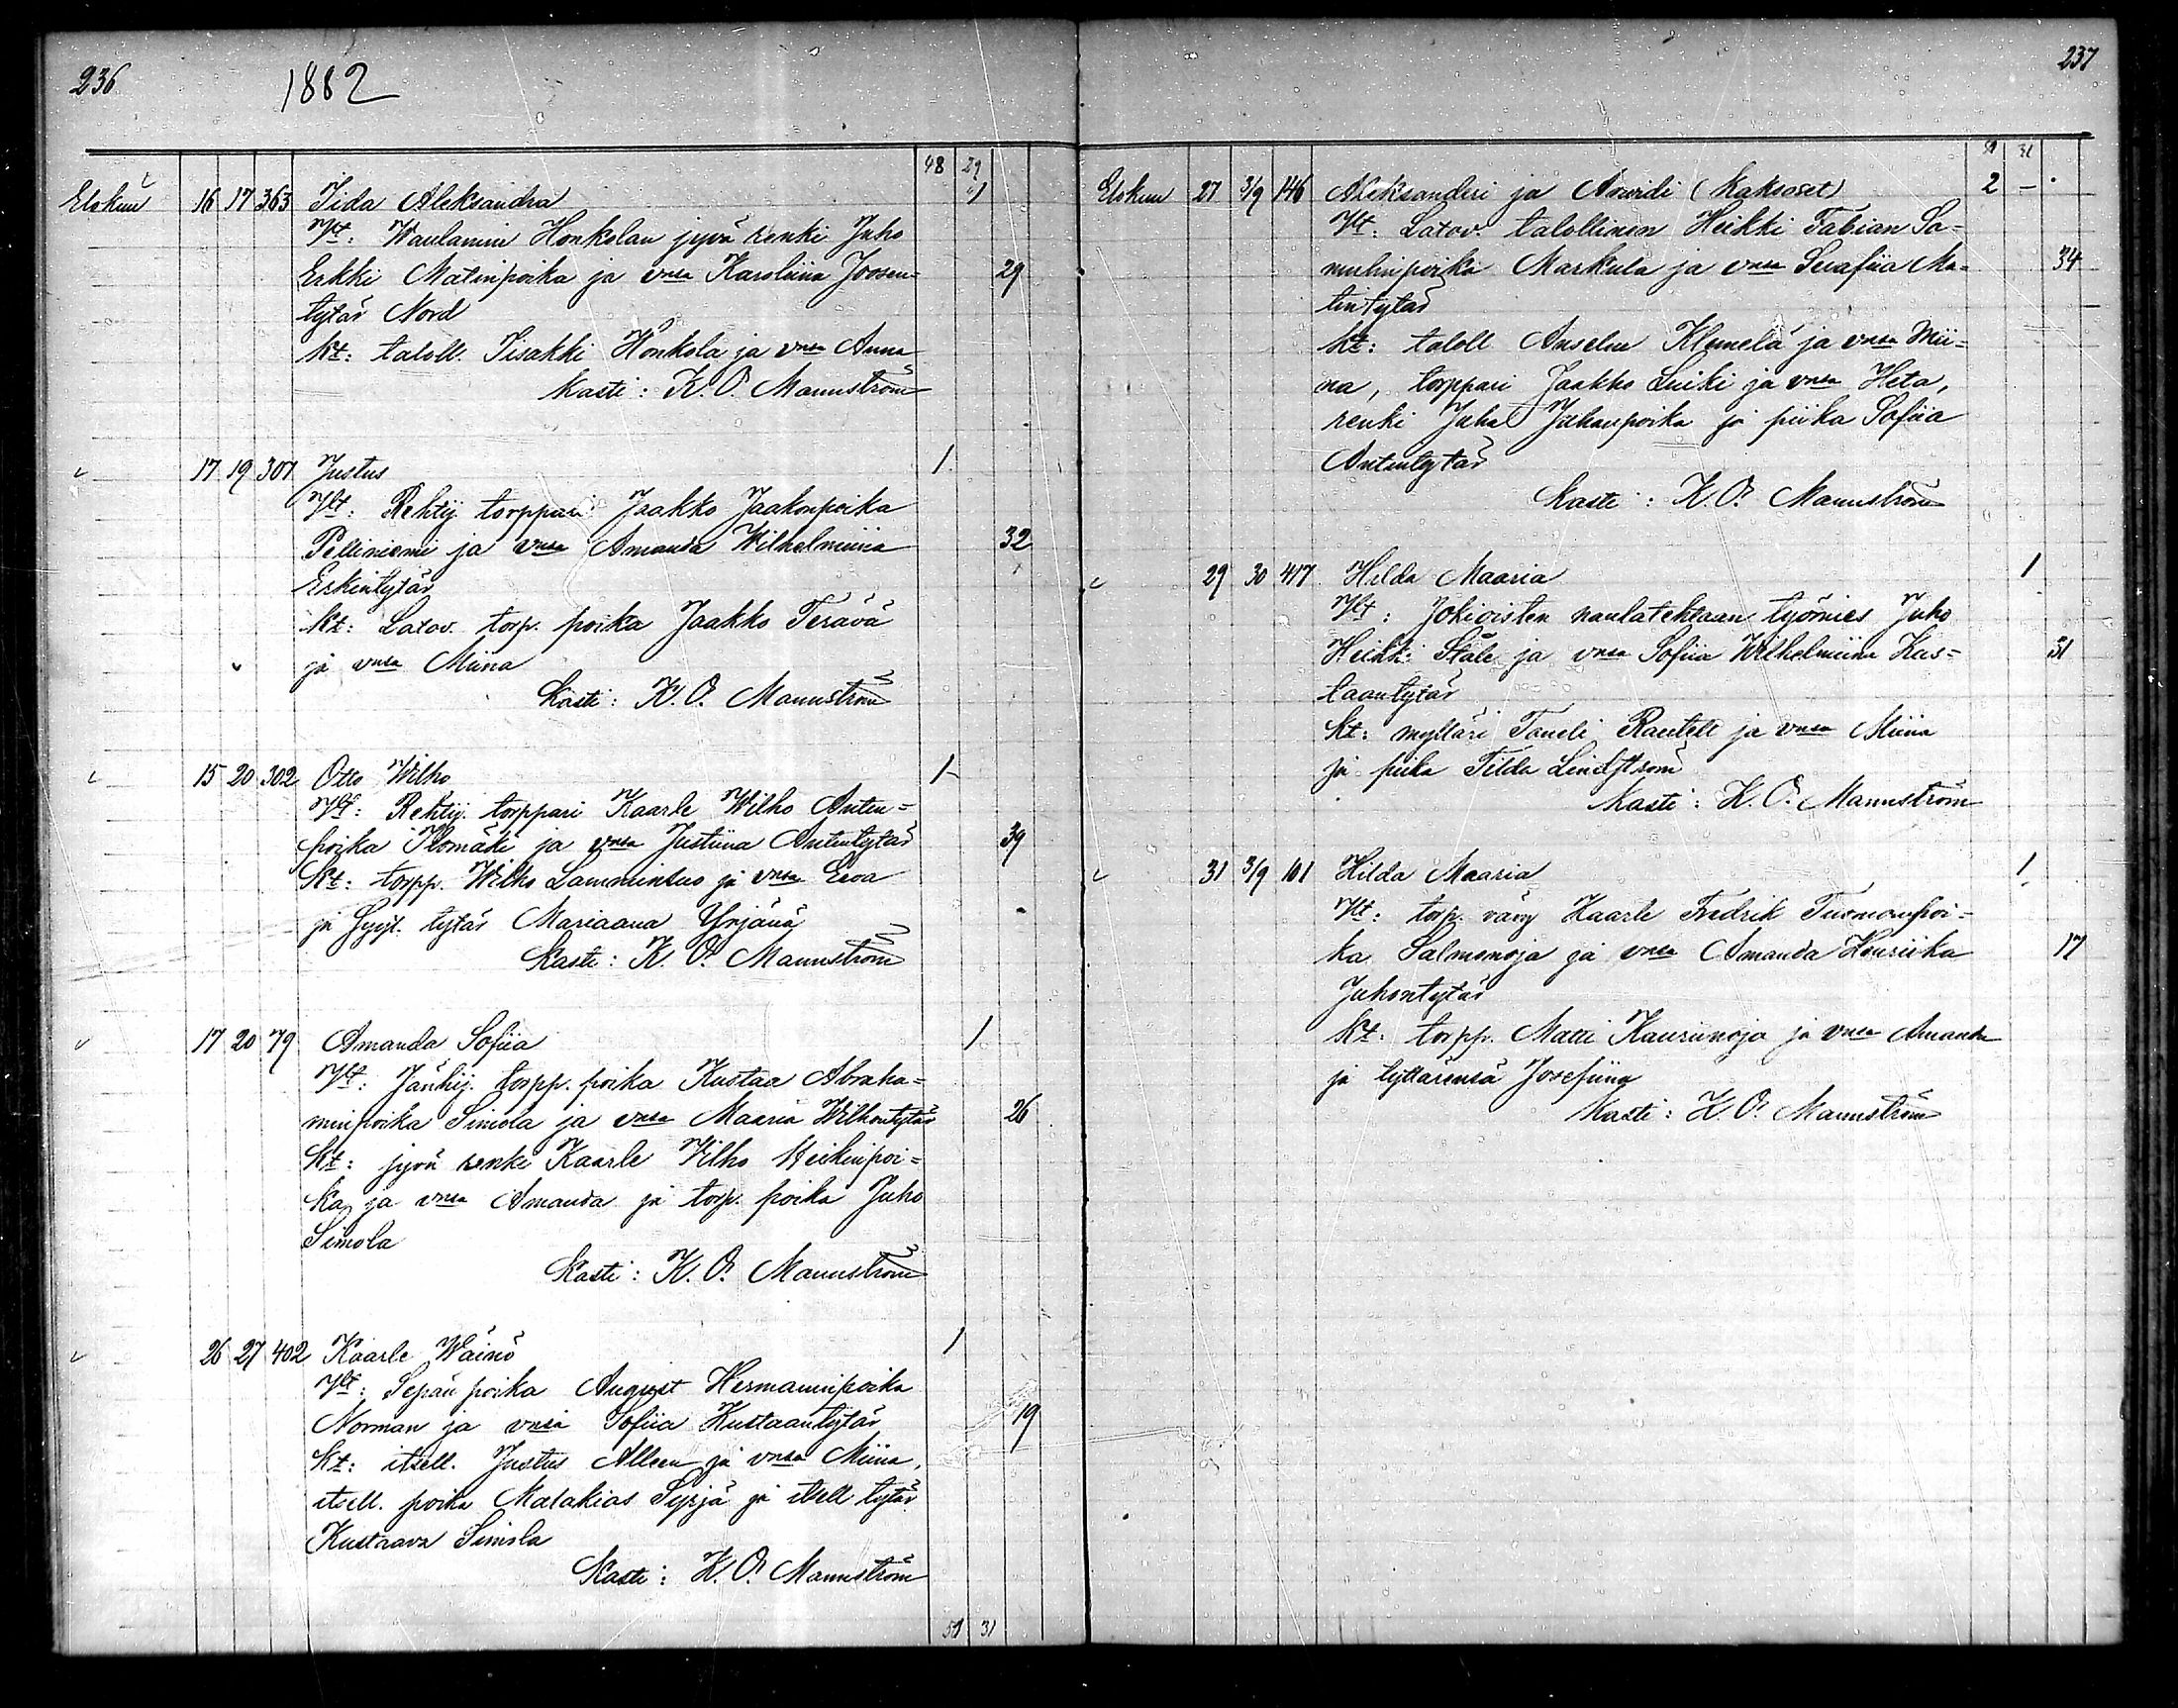 236
1882
48 29
Elokuu 16 17 363 Iida Aleksandra 1
Vt: Waulamin Honkolan jyvä renki Juho
Erkki Matinpoika ja vnsa Karoliina Joosen- 29
tytär Nord
Kt: taloll. Iisakki Honkola ja vnsa Anna
Kasti: K. O. Mannström
17 19 307 Justus 1
Vt: Rehtij. torppari Jaakko Jaakonpoika
Pelliniemi ja vnsa Amanda Wilhelmiina 32
Erkintytär
Kt: Latov. torp. poika Jaakko Terävä
ja vnsa Miina
Kasti: K. O. Mannström
15 20 302 Otto Wilho 1
Vt: Rehtij. torppari Kaarle Wilho Antin-
poika Ilomäki ja vnsa Justiina Antintytär 39
Kt: torpp. Wilho Lamminsuo ja vnsa Eeva
ja tytär Mariaana Yrjänä
Kasti: K. O. Mannström
17 20 79 Amanda Sofiia 1
Vt: Jänhij. torpp. poika Kustaa Abraha-
minpoika Simola ja vnsa Maaria Wilhontytär 26
Kt: jyvä renki Kaarle Wilho Heikinpoi-
ka ja vnsa Amanda ja torp. poika Juho
Simola
Kasti: K. O. Mannström
26 27 402 Kaarle Wäinö 1
Vt: Sepän poika August Hermanninpoika
Norman ja vnsa Sofiia Kustaantytär 19
Kt: itsell. Justus Alleen ja vnsa Miina,
itsell. poika Malakias Syrjä ja itsell tytär
Kustaava Simola
Kasti: K. O. Mannström
50 31
237
50 31
Elokuu 27 3/9 146 Aleksanderi ja Arvidi (Kaksoset) 2 -
Vt: Latov. talollinen Heikki Fabian Sa-
mulinpoika Markula ja vnsa Serafiia Ma- 34
tintytär
Kt: taloll Anselm Klemelä ja vnsa Mii-
na, torppari Jaakko Luiki ja vnsa Heta,
renki Juha Juhanpoika ja piika Sofiia
Antintytär
Kasti: K. O. Mannström
29 30 417 Hilda Maaria 1
Vt: Jokioisten naulatehtaan työmies Juho
Heikki Ståle ja vnsa Sofiia Wilhelmiina Kus- 31
taantytär
Kt: mylläri Taneli Rantell ja vnsa Miina
ja piika Tilda Lindström
Kasti: K. O. Mannström
31 3/9 101 Hilda Maaria 1
Vt: torp. vävy Kaarle Fredrik Tuomonpoi-
ka Salmenoja ja vnsa Amanda Henriika 17
Juhontytär
Kt: torpp. Matti Kaurinoja ja vnsa Amanda
ja tyttärensä Josefiina
Kasti: K. O. Mannström